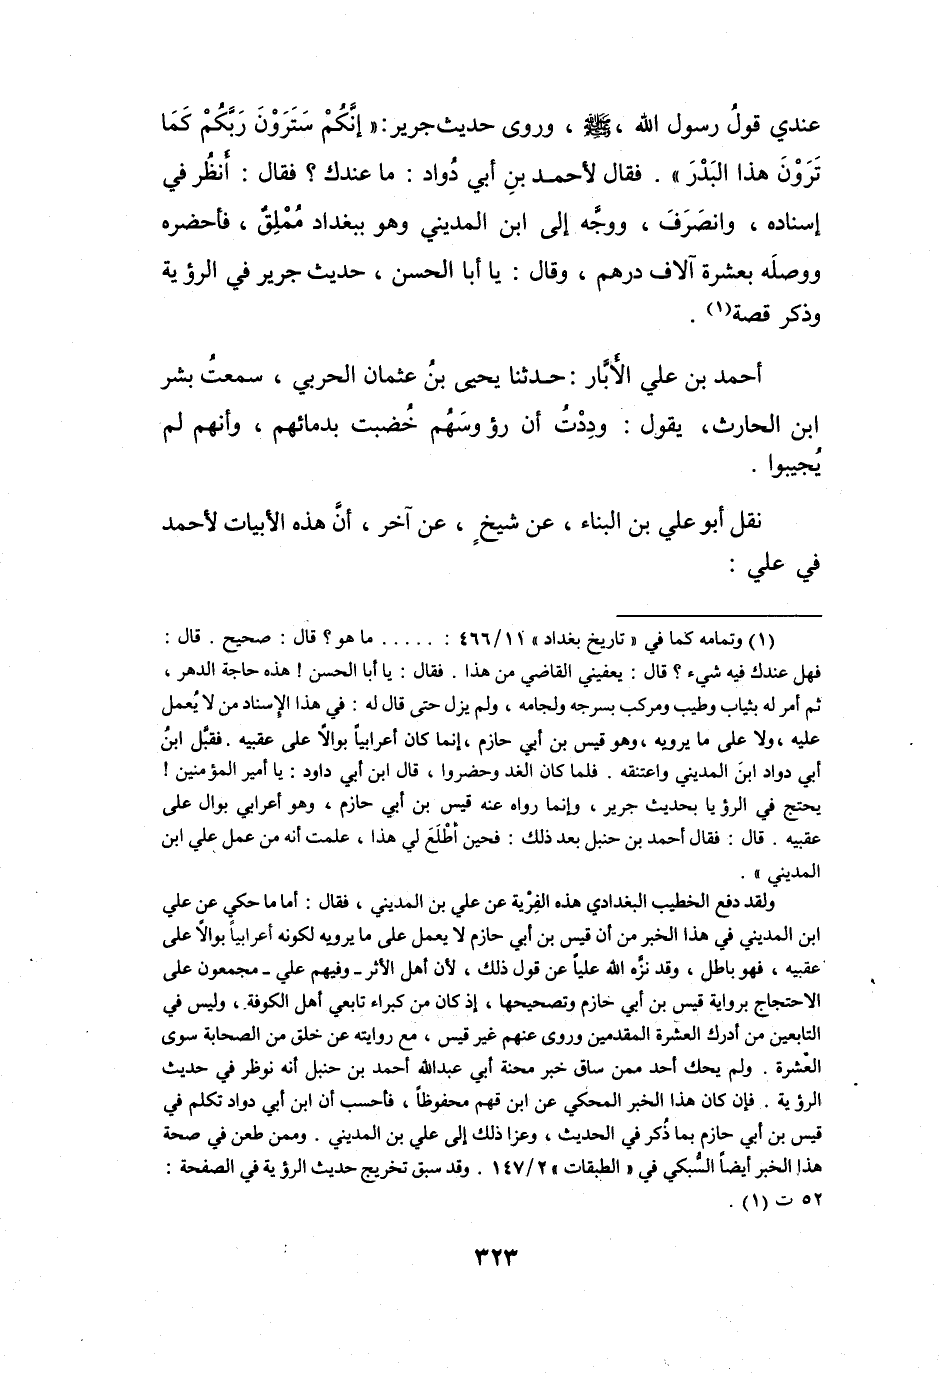 عندي قولُ رسول الله ، ﷺ ، وروى حديث جرير : « إنَّكُمْ سَتَرَوْنَ رَبَّكُمْ كَمَا
تَرَوْنَ هذا البَدْرَ » . فقال لأحمد بنِ أبي دُواد : ما عندك ؟ فقال : أَنظُر في
إسناده ، وانصَرَفَ ، ووجَّه إلى ابن المديني وهو ببغداد مُمْلِقٌ ، فأحضره
ووصلَه بعشرة آلاف درهم ، وقال : يا أبا الحسن ، حديث جرير في الرؤية
وذكر قصة(١) .
أحمد بن علي الأبَّار : حدثنا يحيى بنُ عثمان الحربي ، سمعتُ بشر
ابن الحارث، يقول : ودِدْتُ أن رؤوسَهُم خُضبت بدمائهم ، وأنهم لم
يُجيبوا .
نقل أبو علي بن البناء ، عن شيخٍ ، عن آخر ، أنَّ هذه الأبيات لأحمد
في علي :
(١) وتمامه كما في « تاريخ بغداد » ٤٦٦/١١ : ..... ما هو ؟ قال : صحيح . قال :
فهل عندك فيه شيء ؟ قال : يعفيني القاضي من هذا . فقال : يا أبا الحسن ! هذه حاجة الدهر ،
ثم أمر له بثياب وطيب ومركب بسرجه ولجامه ، ولم يزل حتى قال له : في هذا الإسناد من لا يُعمل
عليه ، ولا على ما يرويه ، وهو قيس بن أبي حازم ، إنما كان أعرابياً بوالًا على عقبيه . فقبَّل ابنُ
أبي دواد ابنَ المديني واعتنقه . فلما كان الغد وحضروا ، قال ابن أبي داود : يا أمير المؤمنين !
يحتج في الرؤيا بحديث جرير ، وإنما رواه عنه قيس بن أبي حازم ، وهو أعرابي بوال على
عقبيه . قال : فقال أحمد بن حنبل بعد ذلك : فحين أَطْلَعَ لي هذا ، علمت أنه من عمل علي ابن
المديني » .
ولقد دفع الخطيب البغدادي هذه الفِرْية عن علي بن المديني ، فقال : أما ما حكي عن علي
ابن المديني في هذا الخبر من أن قيس بن أبي حازم لا يعمل على ما يرويه لكونه أعرابياً بوالًا على
عقبيه ، فهو باطل ، وقد نزَّه الله علياً عن قول ذلك ، لأن أهل الأثر - وفيهم علي - مجمعون على
الاحتجاج برواية قيس بن أبي حازم وتصحيحها ، إذ كان من كبراء تابعي أهل الكوفة ، وليس في
التابعين من أدرك العشرة المقدمين وروى عنهم غير قيس ، مع روايته عن خلق من الصحابة سوى
العشرة . ولم يحك أحد ممن ساق خبر محنة أبي عبدالله أحمد بن حنبل أنه نوظر في حديث
الرؤية . فإن كان هذا الخبر المحكي عن ابن قهم محفوظاً ، فأحسب أن ابن أبي دواد تكلم في
قيس بن أبي حازم بما ذُكر في الحديث ، وعزا ذلك إلى علي بن المديني . وممن طعن في صحة
هذا الخبر أيضاً السُّبكي في « الطبقات » ١٤٧/٢ . وقد سبق تخريج حديث الرؤية في الصفحة :
٥٢ ت (١) .
٣٢٣